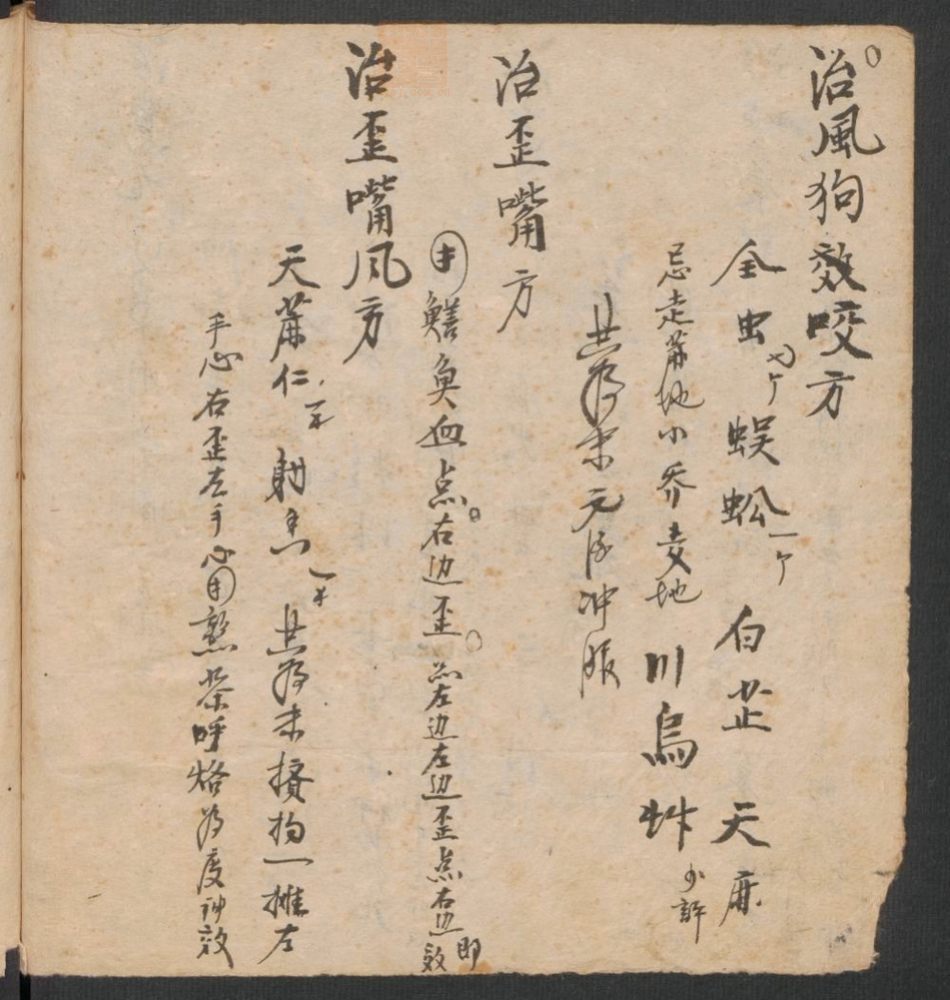 治風狗效咬方
全虫七个 蜈蚣一个 白芷 天麻
忌走蔴地小乔麦地 川烏 艸少許
共為末元酒冲服
治歪嘴方
用鱔魚血点右边歪点左边左边歪点右边即效
治歪嘴風方
天蔴仁一 射香一 共為末 一 左
手心右歪左手心用熟茶呼烙為度神效